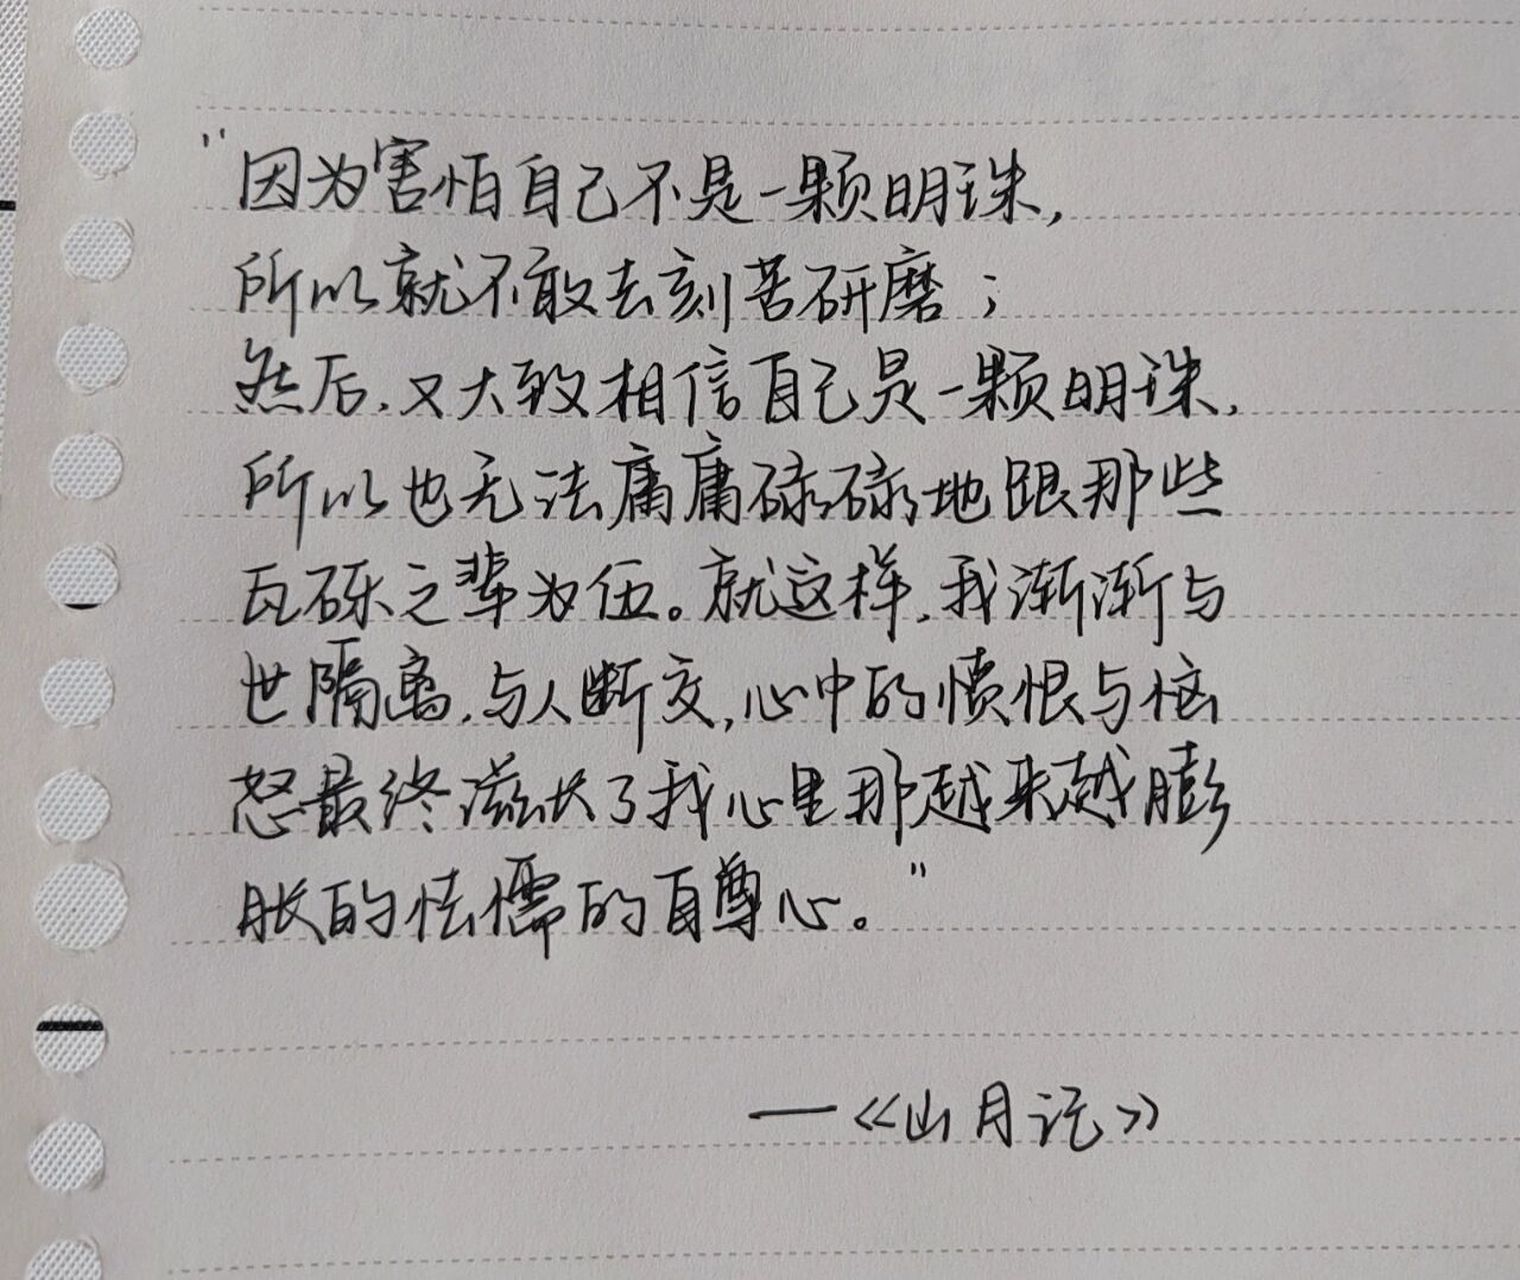 "因为害怕自己不是一颗明珠，
所以就不敢去刻苦研磨；
然后，又大致相信自己是一颗明珠，
所以也无法庸庸碌碌地跟那些
瓦砾之辈为伍。就这样，我渐渐与
世隔离，与人断交，心中的愤恨与恼
怒最终滋长了我心里那越来越膨
胀的怯懦的自尊心。"
——《山月记》